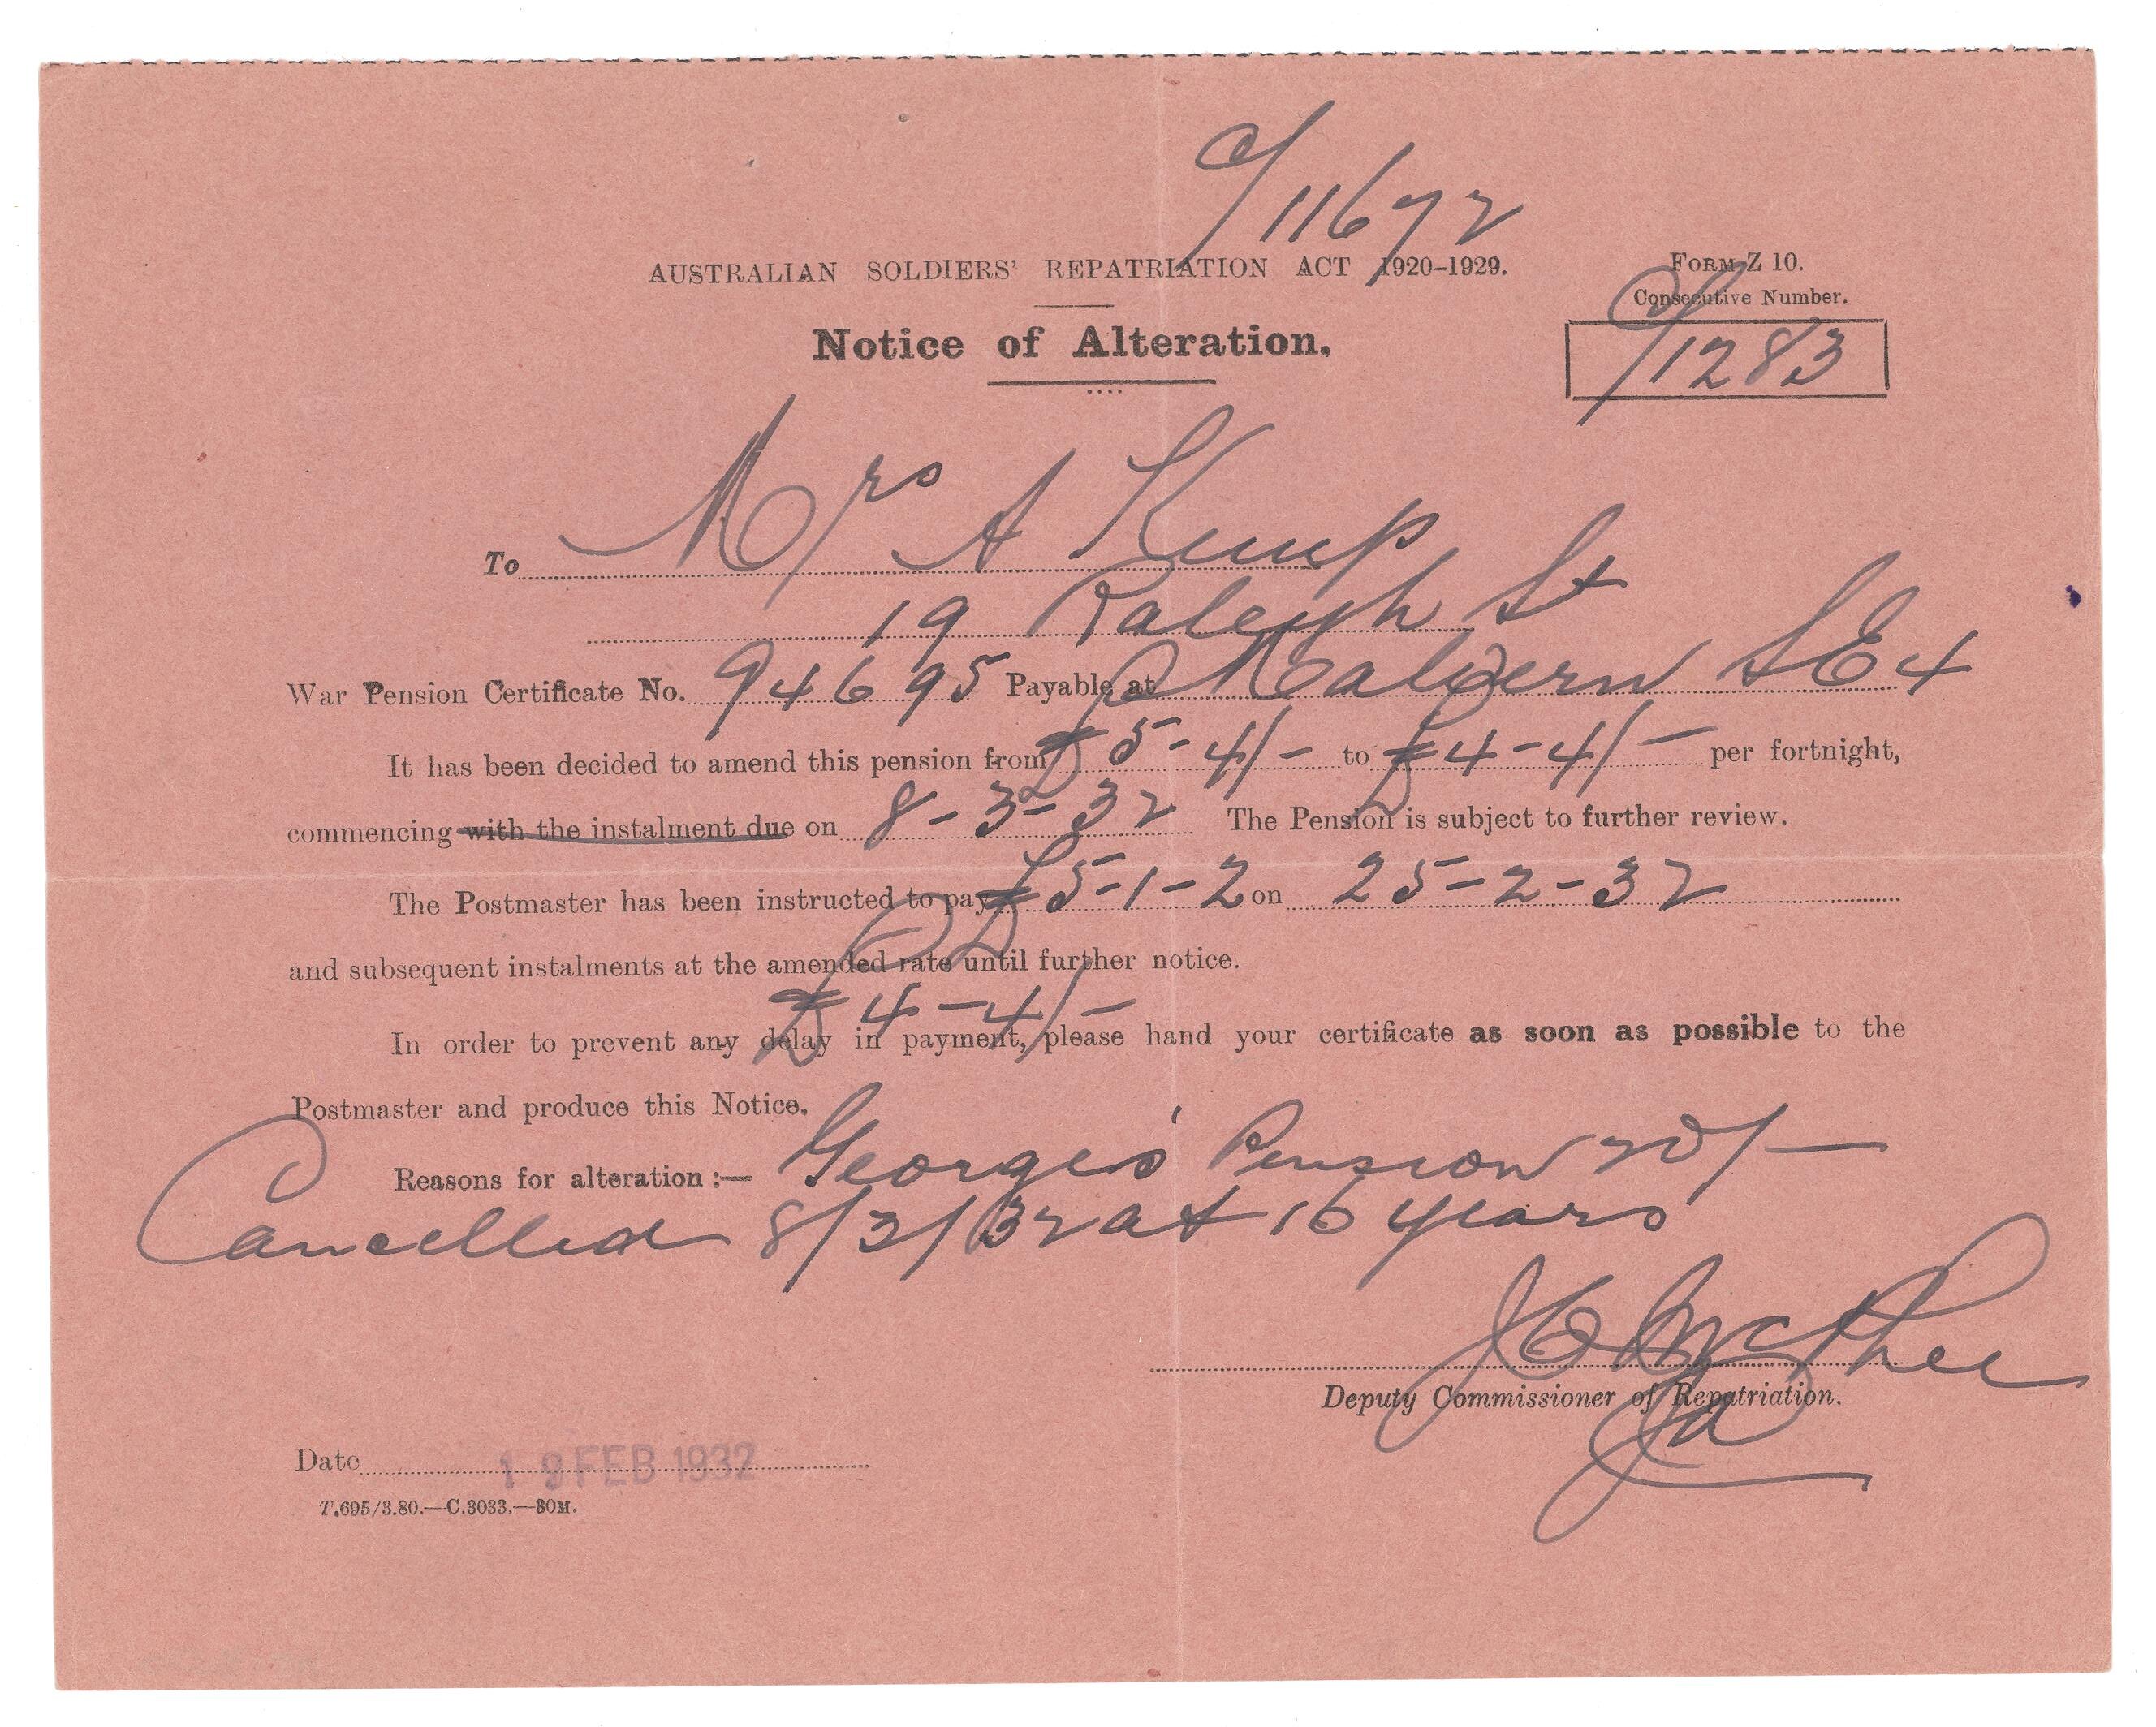 C/11672
AUSTRALIAN SOLDIERS' REPATRIATION ACT 1920-1929.
FORM Z 10.
Consecutive Number.
Notice of Alteration.
C/1283
To Mrs A Kemp
19 Raleigh St
War Pension Certificate No. 94695 Payable at Malvern SE4
It has been decided to amend this pension from £5-4/- to £4-4/- per fortnight,
commencing with the instalment due on 8-3-32 The Pension is subject to further review.
The Postmaster has been instructed to pay £5-1-2 on 25-2-32
and subsequent instalments at the amended rate until further notice.
£4-4/-
In order to prevent any delay in payment, please hand your certificate as soon as possible to the
Postmaster and produce this Notice.
Reasons for alteration :— George's Pension 20/-
Cancelled 8/3/32 at 16 years
J C McPhee
Deputy Commissioner of Repatriation.
Date 19 FEB 1932
T.695/3.30.—C.3033.—30M.